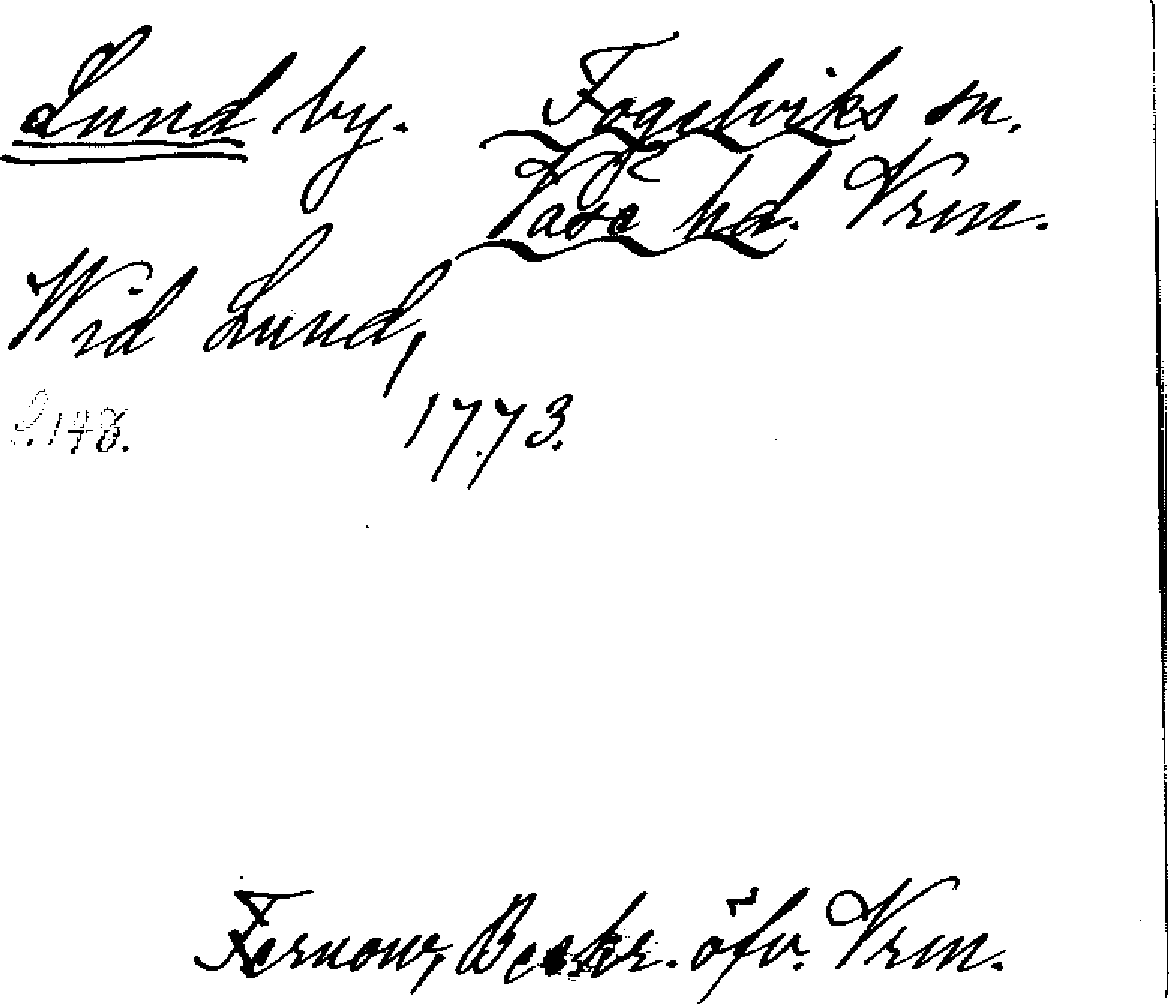 Lund by. Fogelviks sn.
Väse hd. Vrm.
Wid Lund,
S. 148. 1773.
Fernow, Beskr. öfv. Vrm.